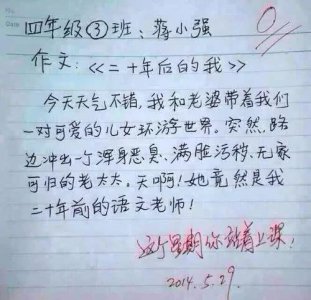 四年级③班：蒋小强
0
作文：《二十年后的我》
今天天气不错，我和老婆带着我们
一对可爱的儿女环游世界。突然，路
边冲出一个浑身恶臭、满脏污秽、无家
可归的老太太。天啊！她竟然是我
二十年前的语文老师！
这个星期你站着上课！
2014.5.29.